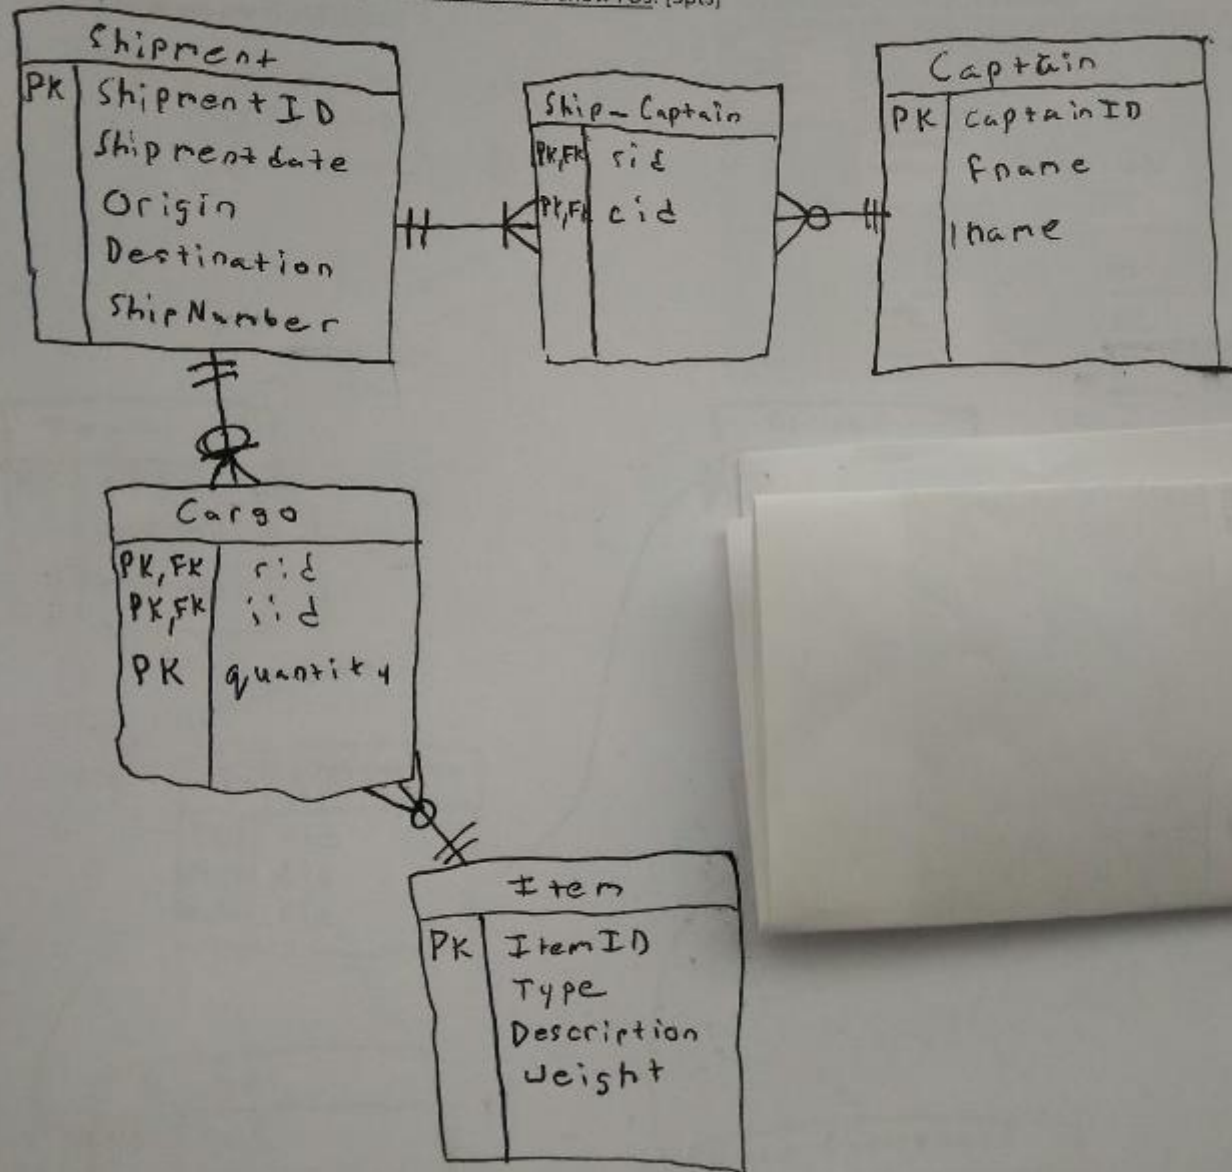 Shipment
PK ShipmentID
Shipmentdate
Origin
Destination
ShipNumber
Ship_Captain
PK,FK sid
PK,FK cid
Captain
PK CaptainID
Fname
lname
Cargo
PK,FK sid
PK,FK iid
PK quantity
Item
PK ItemID
Type
Description
Weight